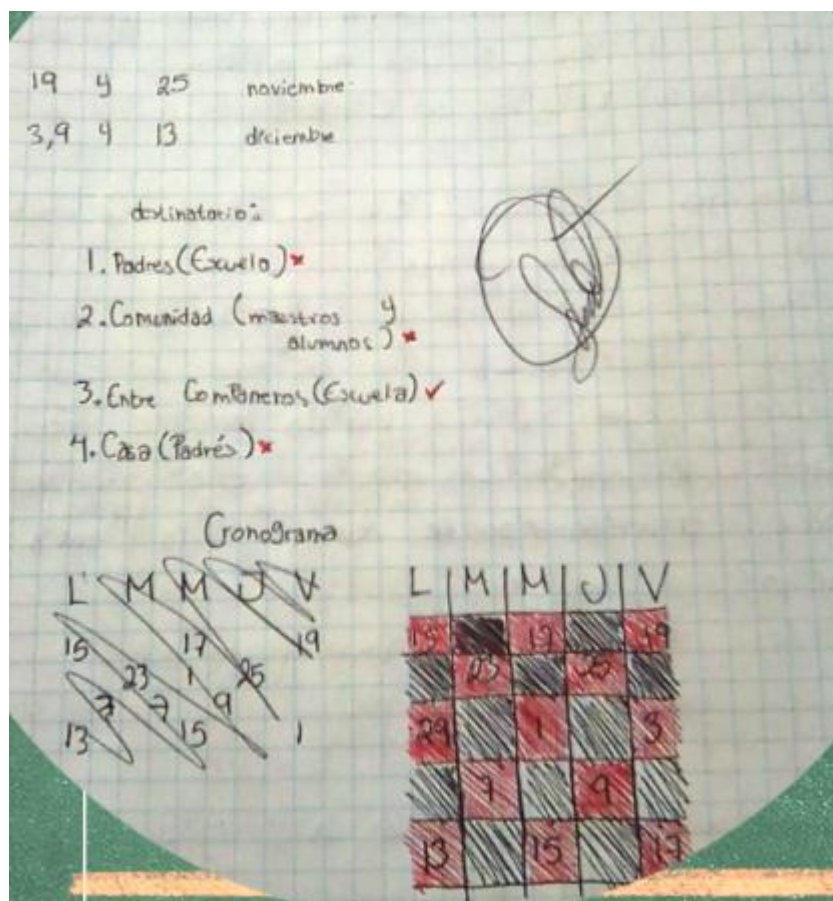 19 y 25 noviembre
3,9 y 13 diciembre
destinatario:
1. Padres (Escuela)
2. Comunidad (maestros y
alumnos)
3. Entre Compañeros (Escuela)
4. Casa (Padrés)
Cronograma
L M M J V
15 17 19
23 1 25
7 7 9
13 15 1
L M M J V
15 17 19
23 25
29 1 3
7 9
13 15 17